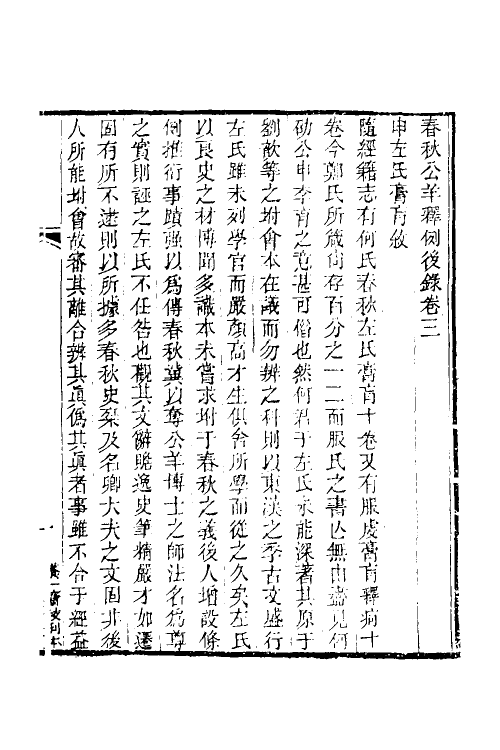 春秋公羊釋例後錄卷三
申左氏膏肓敘
隨經籍志有何氏春秋左氏膏肓十卷又有服虔膏肓釋痾十
卷今鄭氏所箴尙存百分之一二而服氏之書亾無由盡見何
劭公申李育之意甚可惜也然何君于左氏未能深著其原于
劉歆等之坿會本在議而勿辨之科則以東漢之季古文盛行
左氏雖未列學官而嚴顏高才生俱舍所學而從之久矣左氏
以良史之材博聞多識本未嘗求坿于春秋之義後人增設條
例推衍事蹟强以爲傳春秋冀以奪公羊博士之師法名爲尊
之實則誣之左氏不任咎也觀其文辭贍逸史筆精嚴才如遷
固有所不逮則以所據多春秋史乘及名卿大夫之文固非後
人所能坿會故審其離合辨其眞僞其眞者事雖不合于經益
一
養一齋校刊本